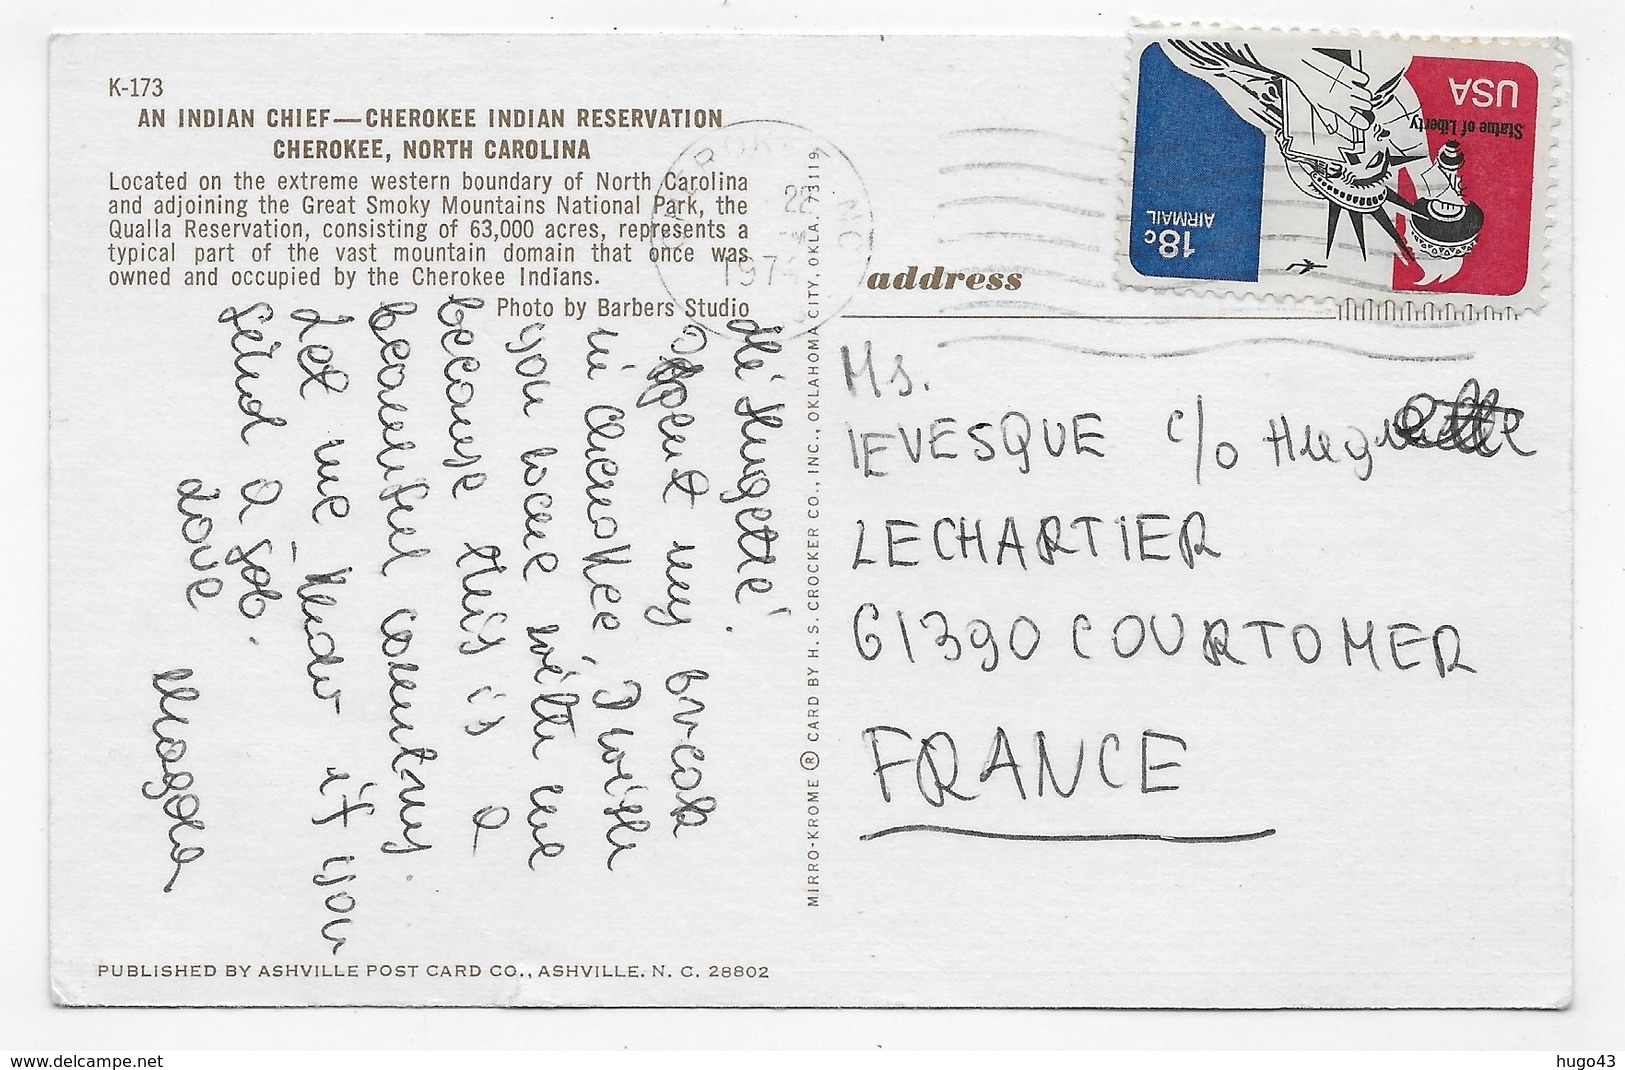 K-173
AN INDIAN CHIEF—CHEROKEE INDIAN RESERVATION
CHEROKEE, NORTH CAROLINA
Located on the extreme western boundary of North Carolina
and adjoining the Great Smoky Mountains National Park, the
Qualla Reservation, consisting of 63,000 acres, represents a
typical part of the vast mountain domain that once was
owned and occupied by the Cherokee Indians.
Photo by Barbers Studio
Hugette!
I spent my break
in Cherokee, I wish
you were with me
because this is a
beautiful country.
Let me know if you
find a job.
Love
Magda
PUBLISHED BY ASHVILLE POST CARD CO., ASHVILLE, N. C. 28802
MIRRO-KROME ® CARD BY H. S. CROCKER CO., INC., OKLAHOMA CITY, OKLA. 73119
NC
22
197
USA
Statue of Liberty
18c
AIRMAIL
address
Ms.
LEVESQUE c/o Huguette
LECHARTIER
61390 COURTOMER
FRANCE
www.delcampe.net
hugo43